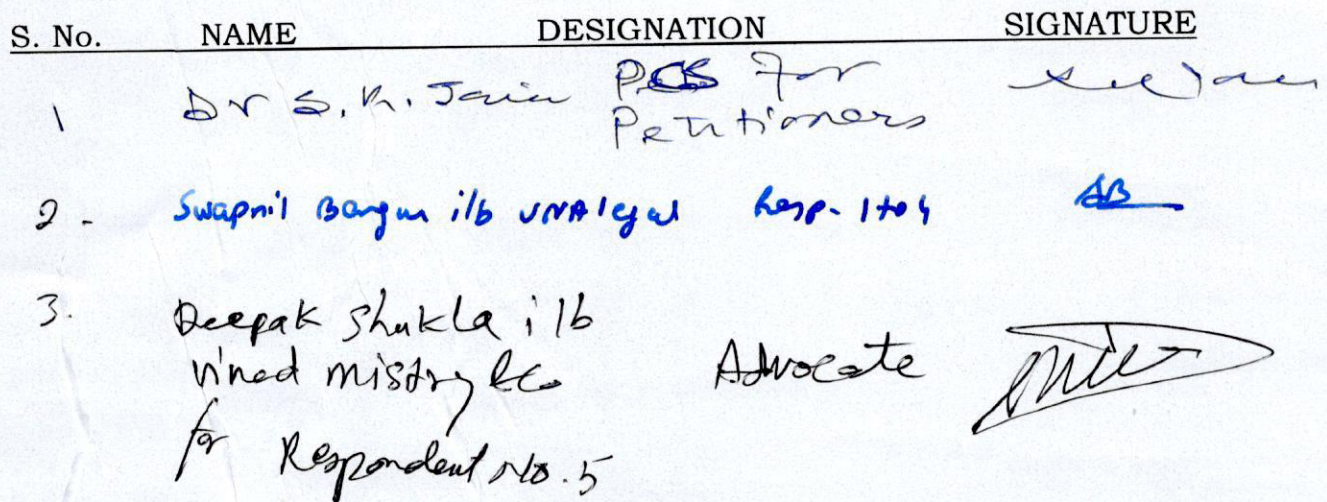 S. No. NAME DESIGNATION SIGNATURE
1 Dr S. K. Jain PCS For
Petitioners
2 - Swapnil Bangur i/b VNA legal Resp. 1 to 4 SB
3. Deepak Shukla i/b
Vinod Mistry & Co
for Respondent No. 5 Advocate